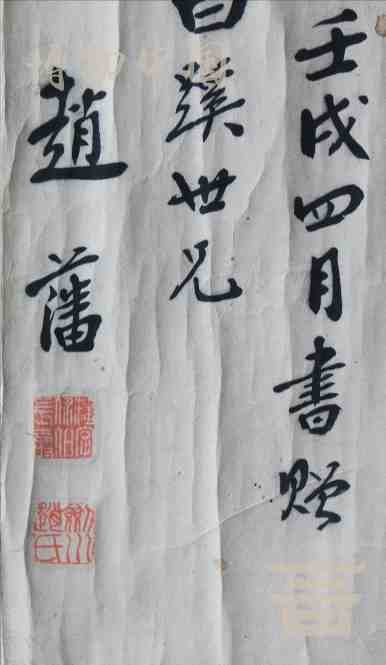 壬戌四月書贈
白溪世兄
趙藩